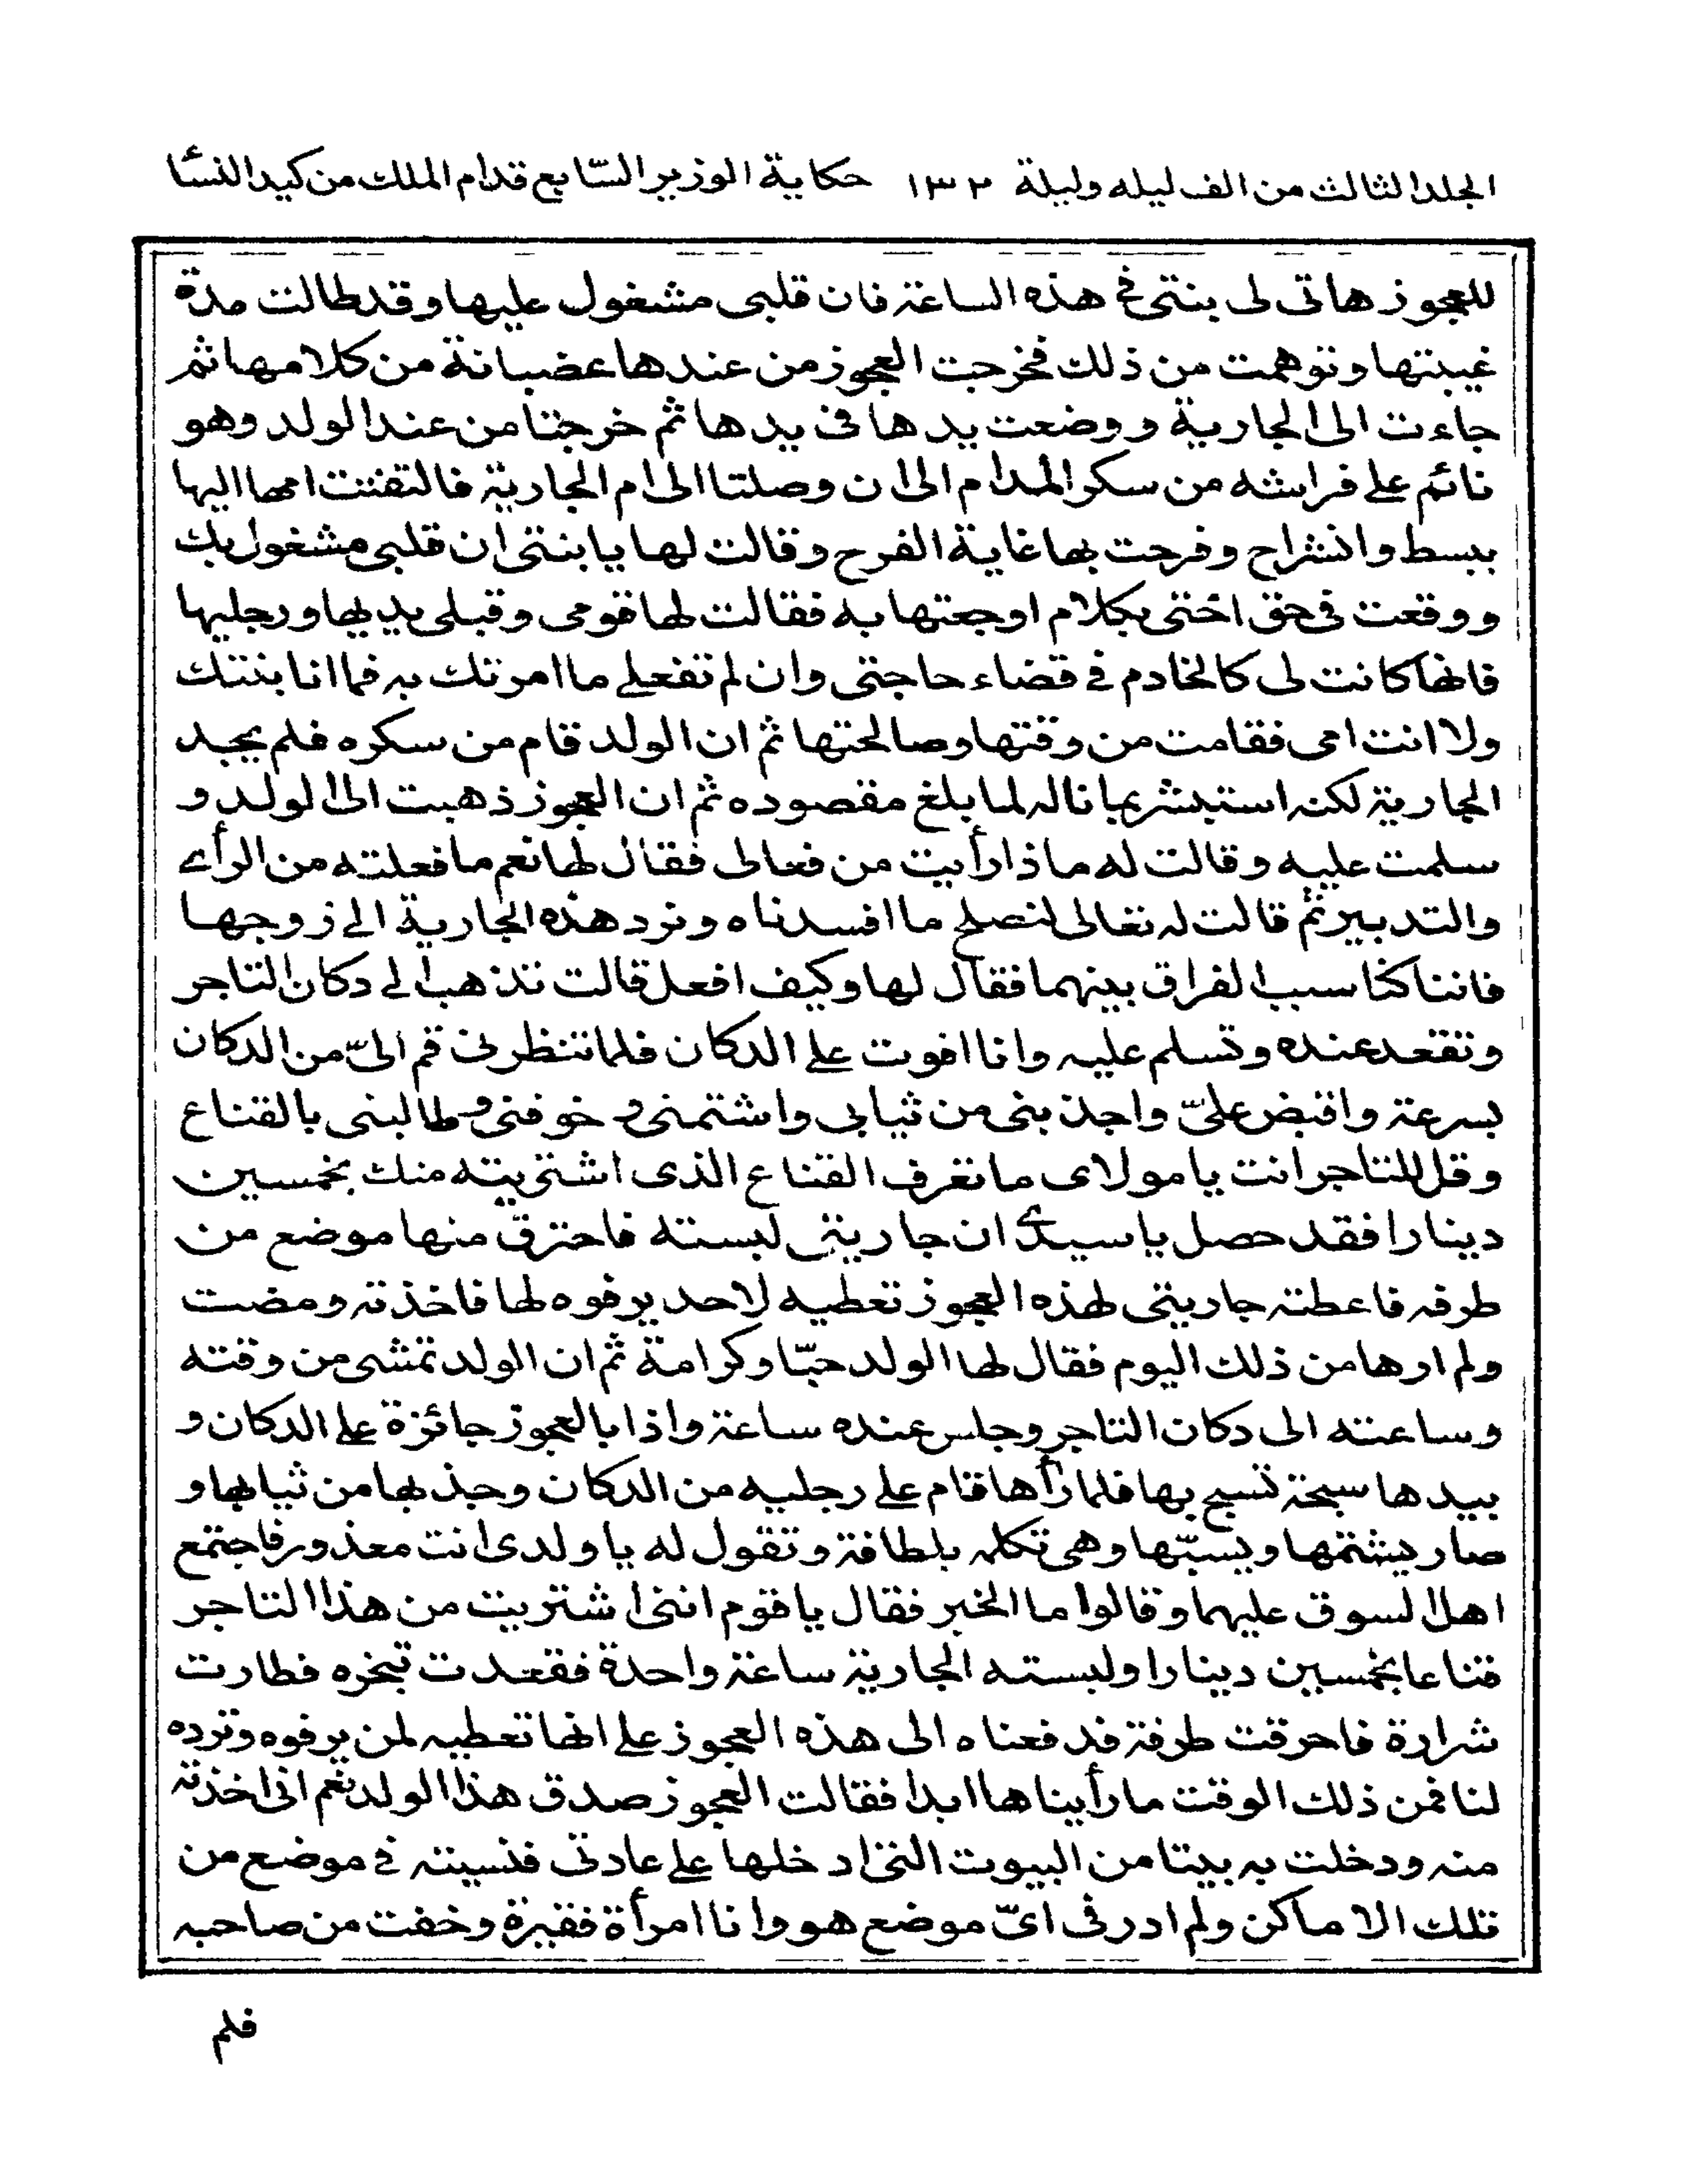 الجلد الثالث من الف ليله وليلة ١٣٢ حكاية الوزير السّابع قدام الملك من كيد النسَاء
للعجوز هاتى لى بنتى فى هذه الساعة فان قلبى مشغول عليها وقد طالت مدة
غيبتها وتوهمت من ذلك فخرجت العجوز من عندها عضبانة من كلامها ثم
جاءت الى الجارية ووضعت يدها فى يدها ثم خرجتا من عند الولد وهو
نائم على فراشه من سكر المدام الى ان وصلتا الى ام الجارية فالتفتت امها اليها
ببسط وانشراح وفرحت بها غاية الفرح وقالت لها يا بنتى ان قلبى مشغول بك
ووقعت فى حق اختى بكلام اوجعتها به فقالت لها قومى وقبلى يديها ورجليها
فانها كانت لى كالخادم فى قضاء حاجتى وان لم تفعلى ما امرتك به فما انا بنتك
ولا انت امى فقامت من وقتها وصالحتها ثم ان الولد قام من سكره فلم يجد
الجارية لكنه استبشر بما ناله لما بلغ مقصوده ثم ان العجوز ذهبت الى الولد و
سلمت عليه وقالت له ماذا رأيت من فعالى فقال لها نعم ما فعلته من الرأى
والتدبير ثم قالت له تعالى لنصلح ما افسدناه ونرد هذه الجارية الى زوجها
فاننا كنا سبب الفراق بينهما فقال لها وكيف افعل قالت تذهب الى دكان التاجر
وتقعد عنده وتسلم عليه وانا افوت على الدكان فلما تنظرنى قم الىّ من الدكان
بسرعة واقبض علىّ واجذبنى من ثيابى واشتمنى و خوفنى وطالبنى بالقناع
وقل للتاجر انت يا مولاى ما تعرف القناع الذى اشتريته منك بخمسين
دينارا فقد حصل يا سيدى ان جاريتى لبسته فاحترق منها موضع من
طرفه فاعطته جاريتى لهذه العجوز تعطيه لاحد يرفوه لها فاخذته ومضت
ولم ارها من ذلك اليوم فقال لها الولد حبّا وكرامة ثم ان الولد تمشى من وقته
وساعته الى دكان التاجر وجلس عنده ساعة واذا بالعجوز جائزة على الدكان و
بيدها سبحة تسبح بها فلما رأها قام على رجليه من الدكان وجذبها من ثيابها و
صار يشتمها ويسبّها وهى تكلمه بلطافة وتقول له يا ولدى انت معذور فاجتمع
اهل السوق عليهما وقالوا ما الخبر فقال يا قوم اننى اشتريت من هذا التاجر
قناعا بخمسين دينارا ولبسته الجارية ساعة واحدة فقعدت تبخره فطارت
شرارة فاحرقت طرفة فدفعناه الى هذه العجوز على انها تعطيه لمن يرفوه وترده
لنا فمن ذلك الوقت ما رأيناها ابدا فقالت العجوز صدق هذا الولد نعم انى اخذته
منه ودخلت به بيتا من البيوت التى ادخلها على عادتى فنسيته فى موضع من
تلك الاماكن ولم ادر فى اىّ موضع هو وانا امرأة فقيرة وخفت من صاحبه
فلم